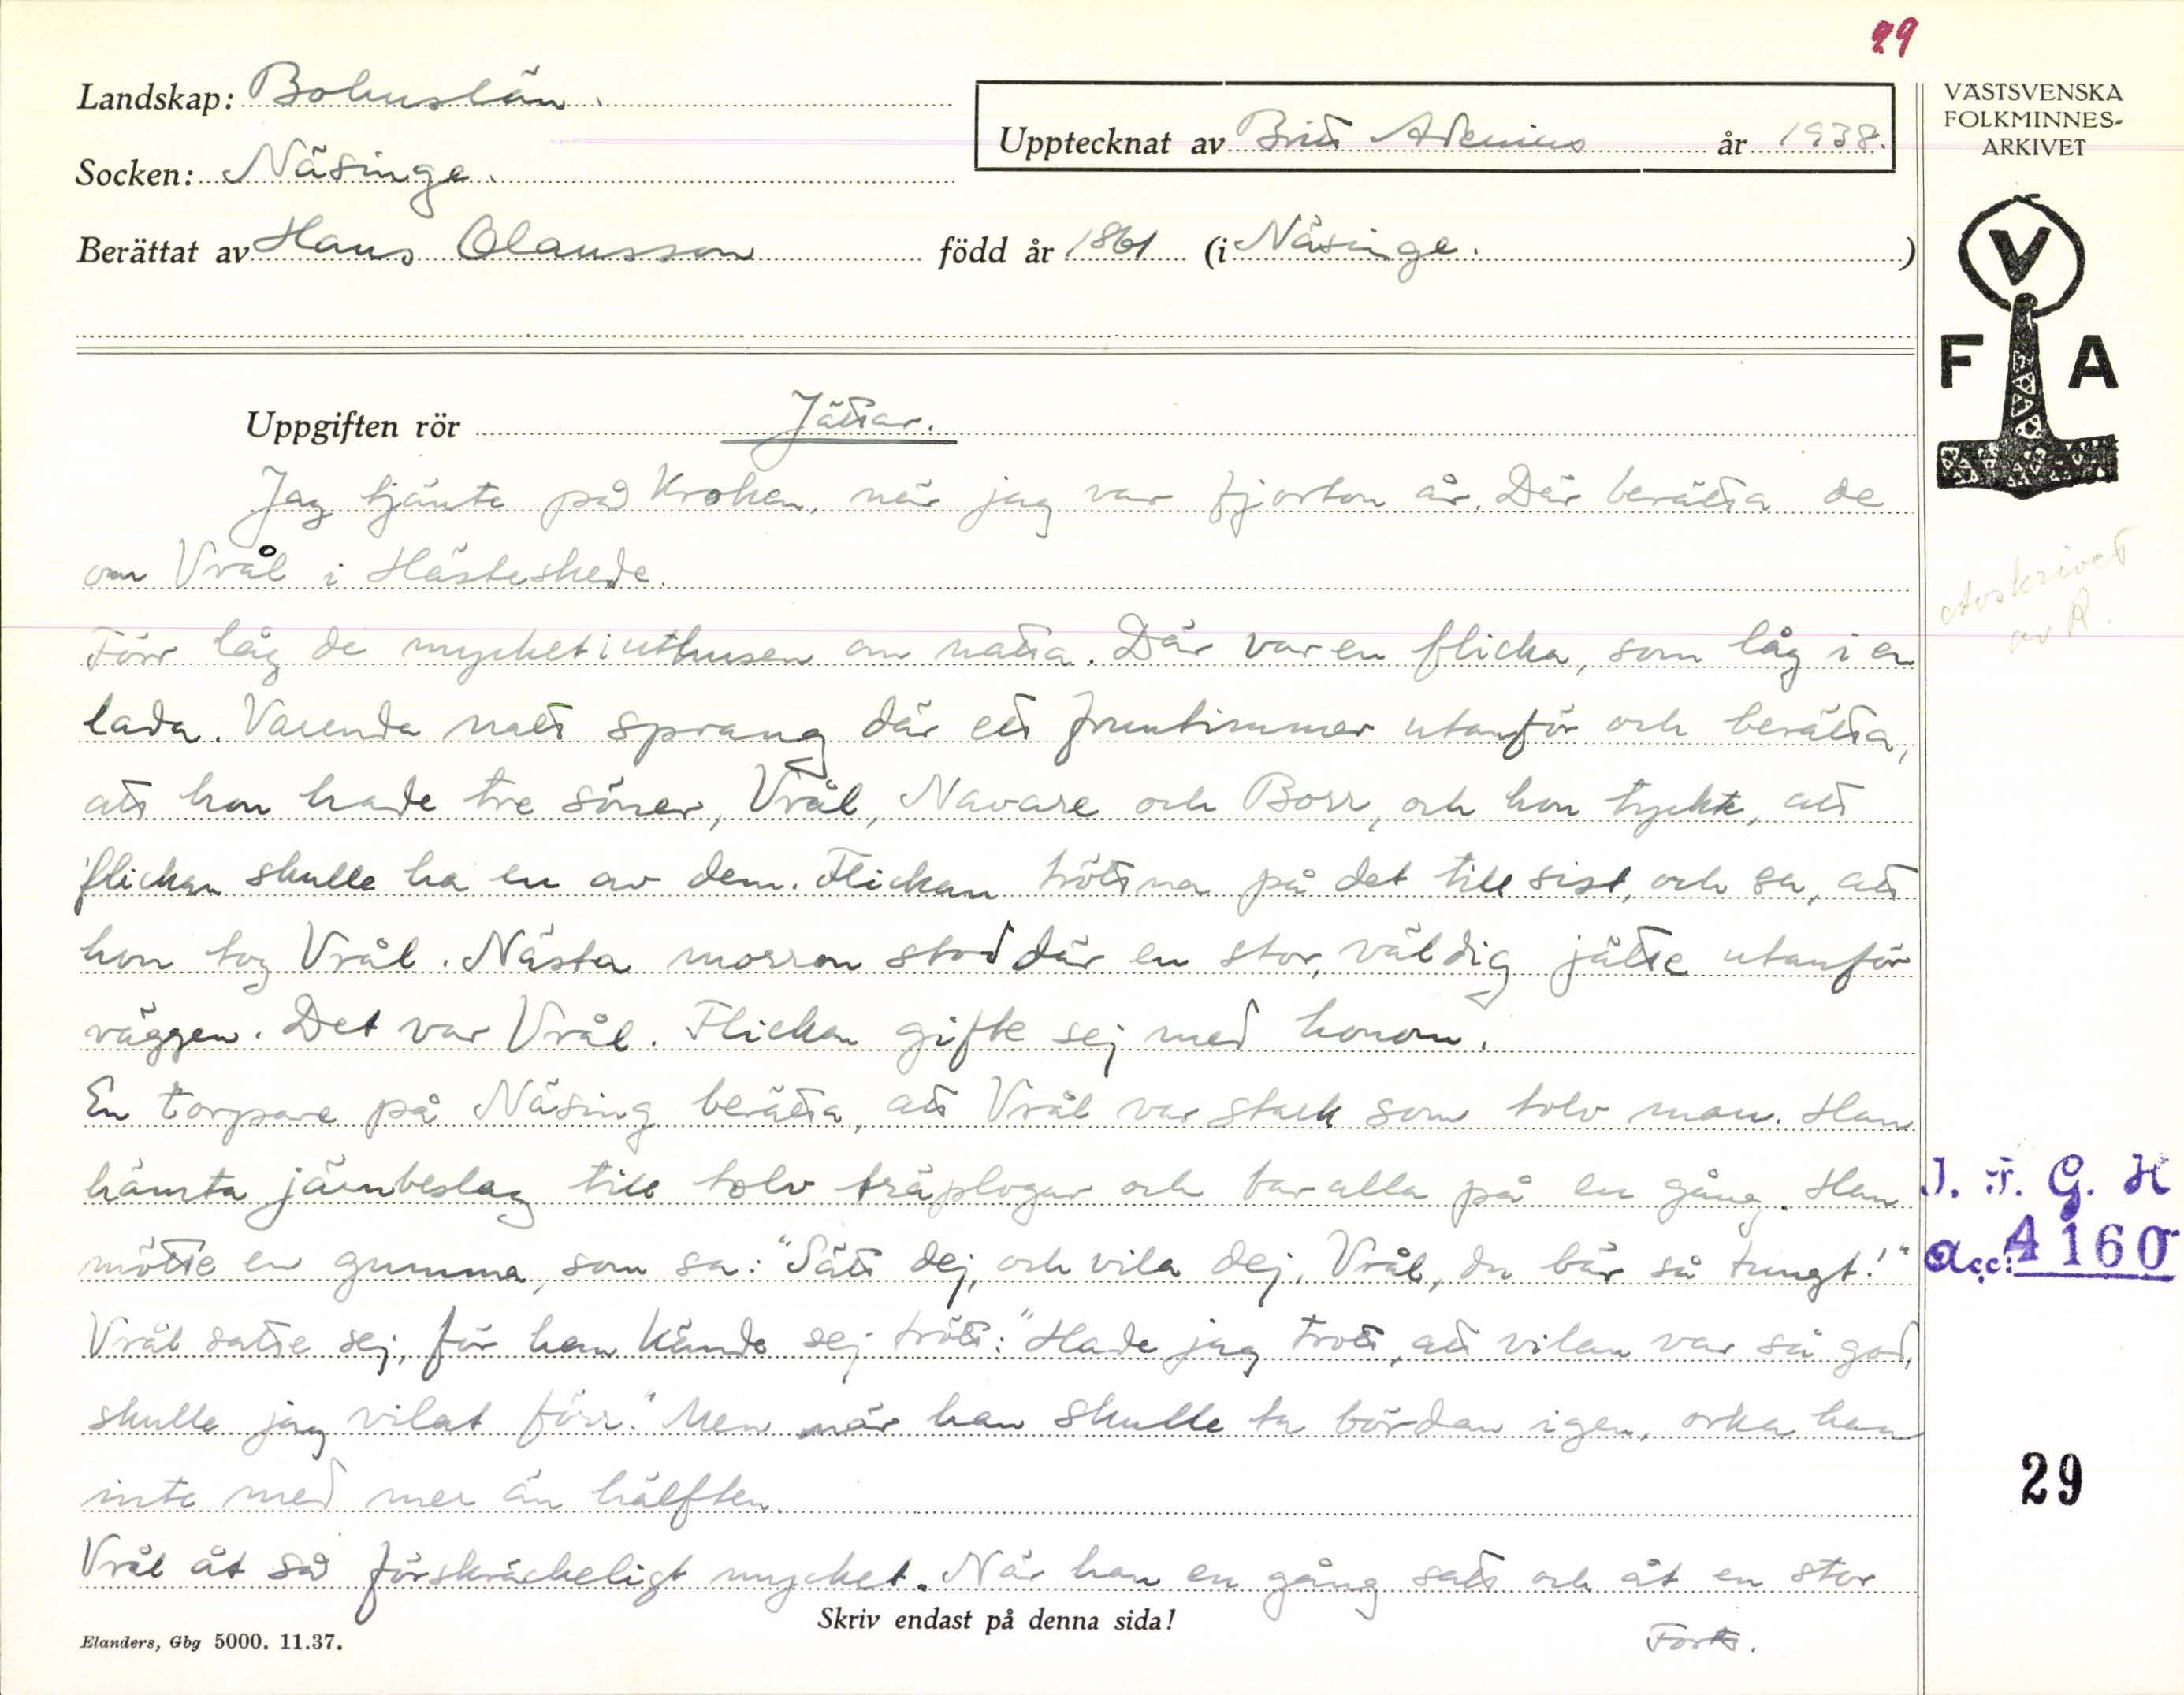 29
Landskap: Bohuslän.
Upptecknat av Britt Arenius år 1938.
Socken: Näsinge.
Berättat av Hans Olausson född år 1861 (i Näsinge.)
VÄSTSVENSKA
FOLKMINNES-
ARKIVET
V
F A
Uppgiften rör Jättar.
Jag tjänte på Kroken, när jag var fjorton år. Där berätta de
om Vrål i Hästeskede.
Förr låg de mycket i uthusen om natta. Där var en flicka, som låg i en
lada. Varenda natt sprang där ett fruntimmer utanför och berätta,
att hon hade tre söner, Vrål, Navare och Borr, och hon tyckte, att
flickan skulle ha en av dem. Flickan tröttna på det till sist, och sa, att
hon tog Vrål. Nästa morron stod där en stor, väldig jätte utanför
väggen. Det var Vrål. Flickan gifte sej med honom.
En torpare på Näsing berätta, att Vrål var stark som tolv man. Han
hämta järnbeslag till tolv träplogar och bar alla på en gång. Han
mötte en gumma, som sa: "Sätt dej, och vila dej, Vrål, du bär så tungt!"
Vrål satte sej, för han kände sej trött: "Hade jag trott, att vilan var så god,
skulle jag vilat förr." Men när han skulle ta bördan igen, orka han
inte med mer än hälften.
Vrål åt så förskräckeligt mycket. När han en gång satt och åt en stor
Forts.
Skriv endast på denna sida!
Elanders, Gbg 5000. 11.37.
Avskrivet
av R.
I. F. G. H
Acc: 4160
29